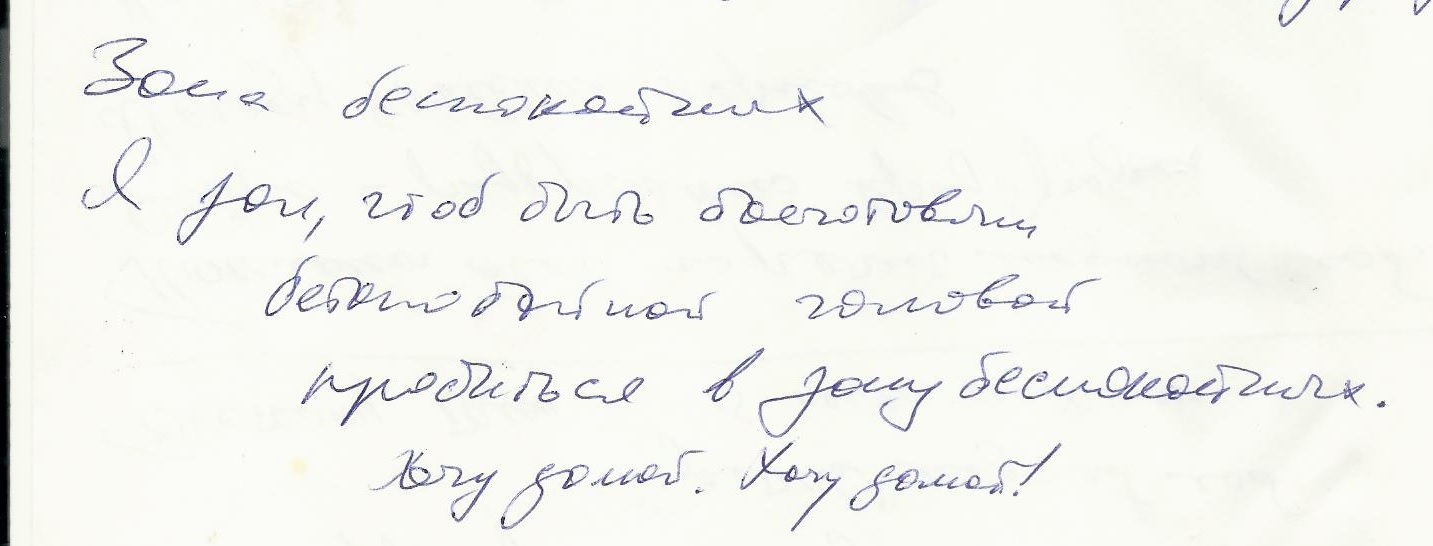 Зона беспокойных
Я зол, чтоб быть
бетонобойной головой
пробиться в зону беспокойных.
Хочу домой. Хочу домой!